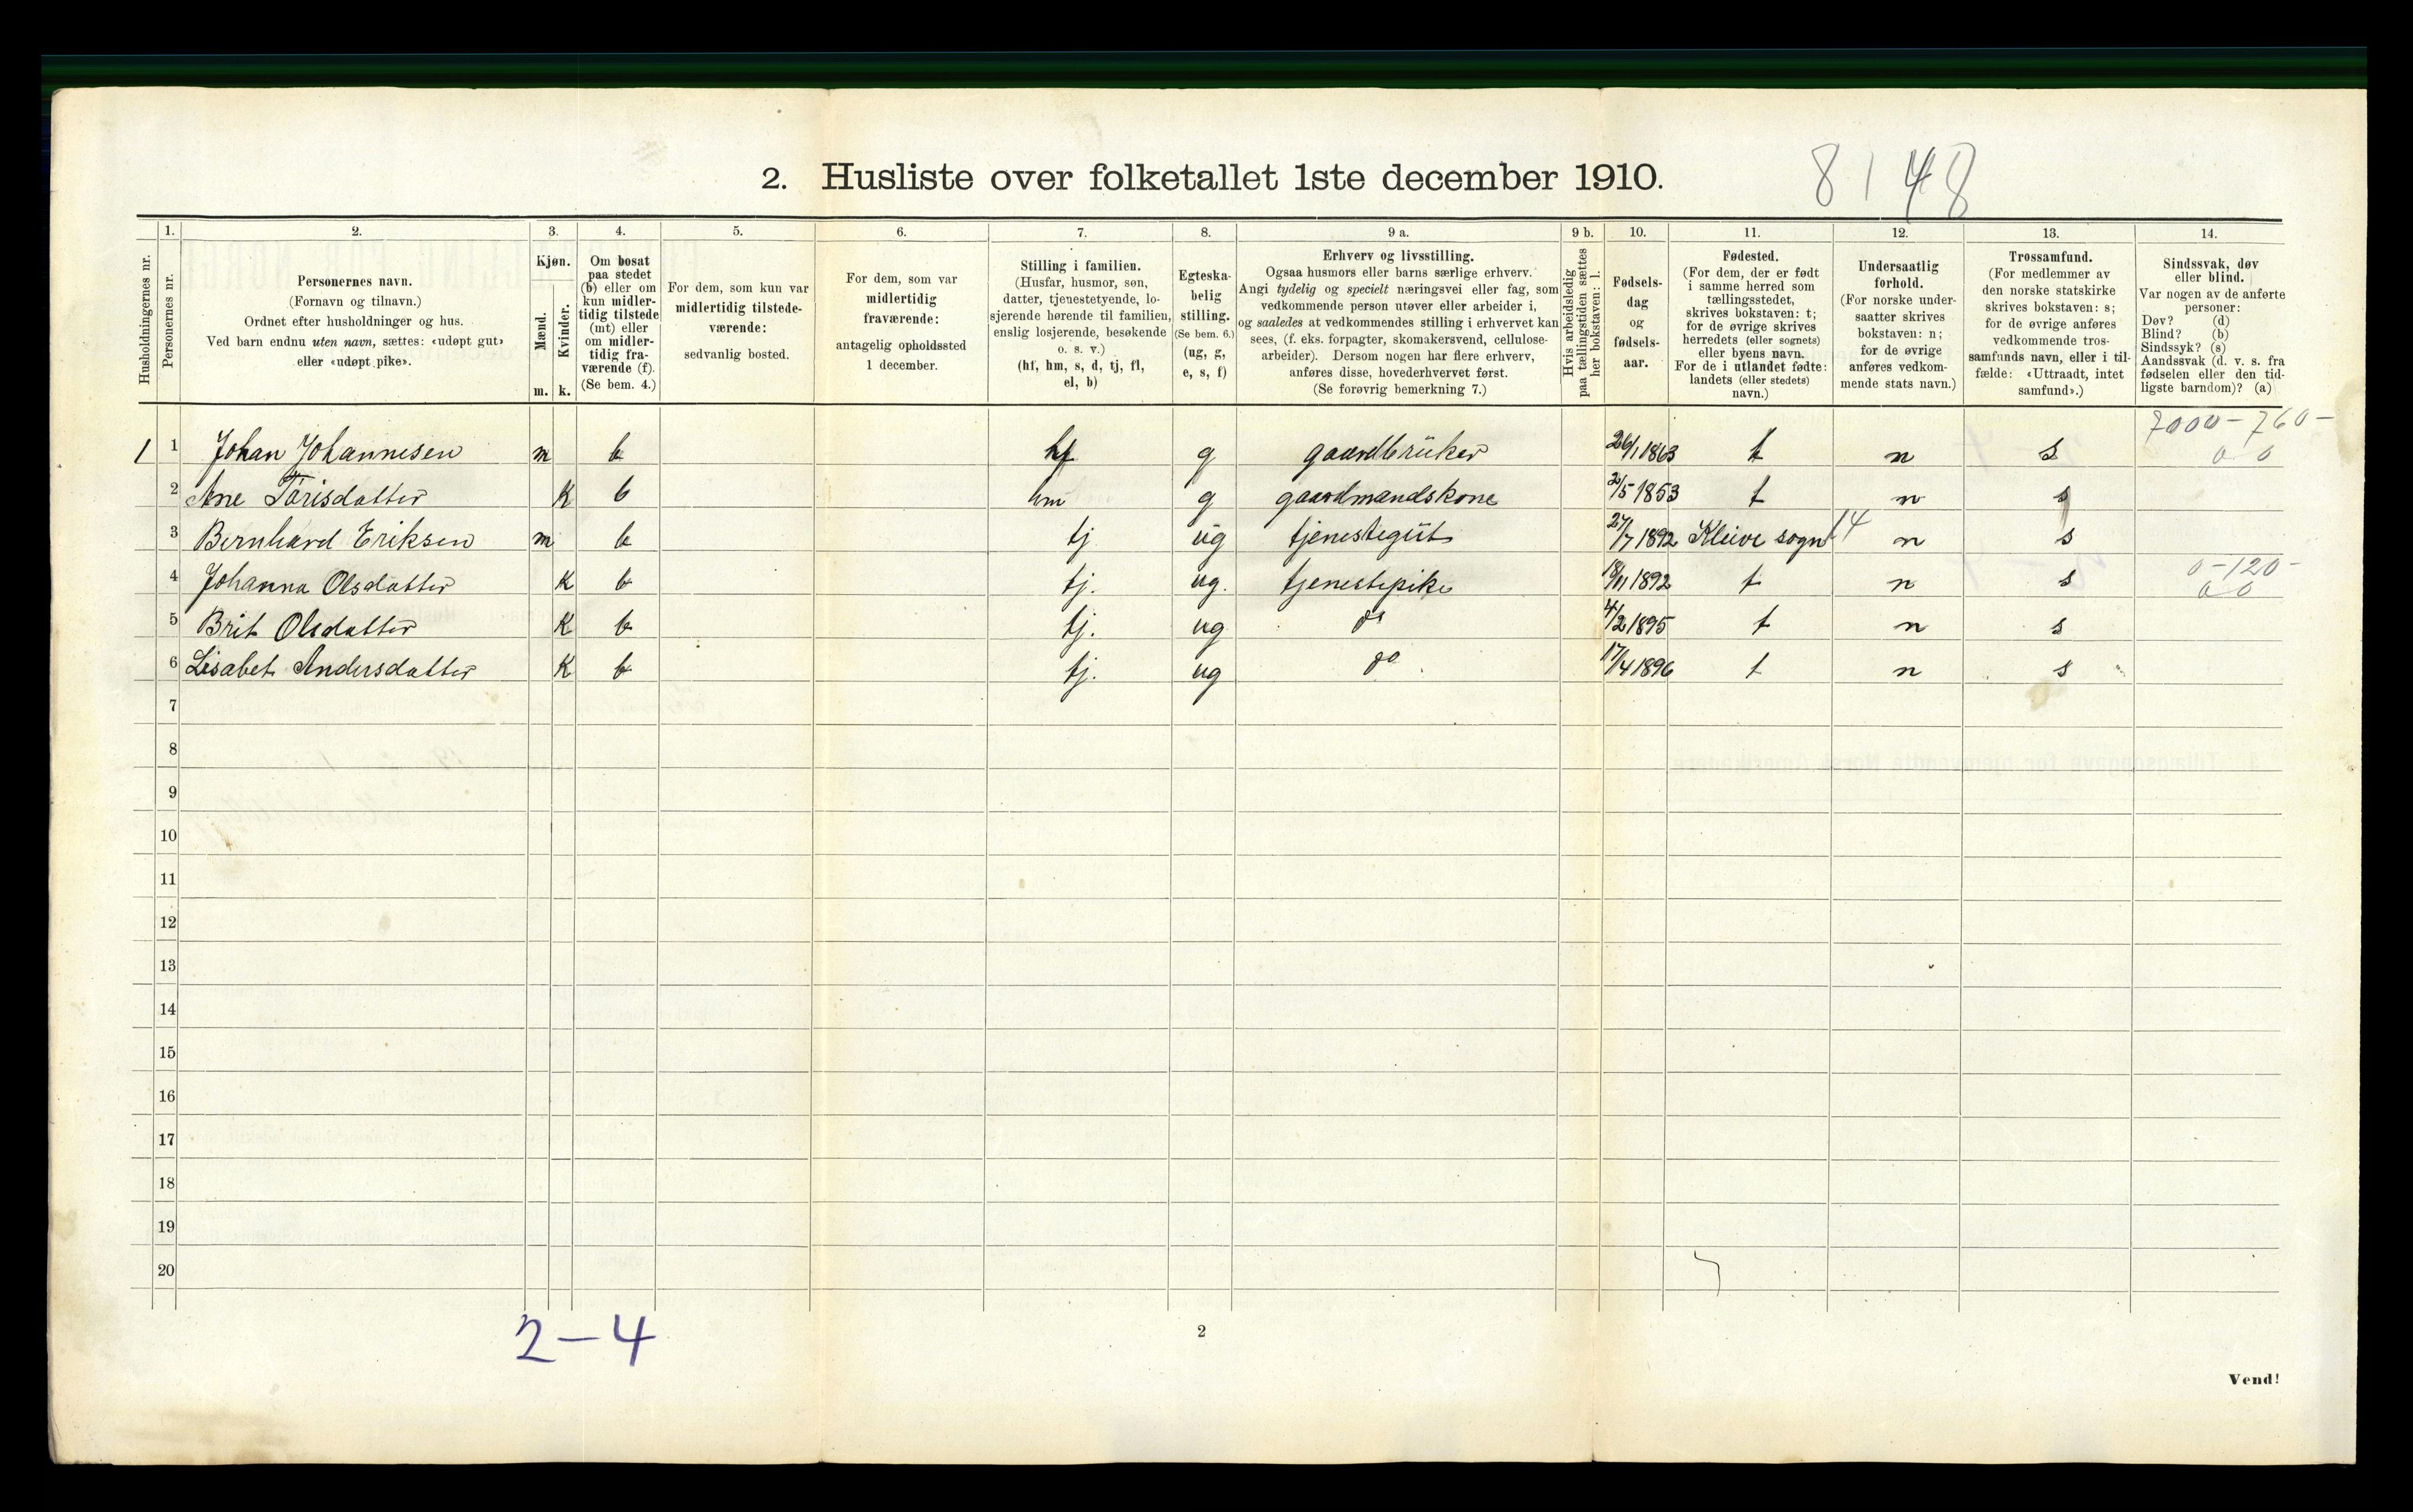 8148
2. Husliste over folketallet 1ste december 1910.
Husholdningernes nr.
1. Personernes nr.
2. Personernes navn.
(Fornavn og tilnavn.)
Ordnet efter husholdninger og hus.
Ved barn endnu uten navn, sættes: «udøpt gut»
eller «udøpt pike».
3. Kjøn.
Mænd. m.
Kvinder. k.
4. Om bosat
paa stedet
(b) eller om
kun midler-
tidig tilstede
(mt) eller
om midler-
tidig fra-
værende (f).
(Se bem. 4.)
5. For dem, som kun var
midlertidig tilstede-
værende:
sedvanlig bosted.
6. For dem, som var
midlertidig
fraværende:
antagelig opholdssted
1 december.
7. Stilling i familien.
(Husfar, husmor, søn,
datter, tjenestetyende, lo-
sjerende hørende til familien,
enslig losjerende, besøkende
o. s. v.)
(hf, hm, s, d, tj, fl,
el, b)
8. Egteska-
belig
stilling.
(Se bem. 6.)
(ug, g,
e, s, f)
9 a. Erhverv og livsstilling.
Ogsaa husmors eller barns særlige erhverv.
Angi tydelig og specielt næringsvei eller fag, som
vedkommende person utøver eller arbeider i,
og saaledes at vedkommendes stilling i erhvervet kan
sees, (f. eks. forpagter, skomakersvend, cellulose-
arbeider). Dersom nogen har flere erhverv,
anføres disse, hovederhvervet først.
(Se forøvrig bemerkning 7.)
9 b. Hvis arbeidsledig
paa tællingstiden sættes
her bokstaven: l.
10. Fødsels-
dag
og
fødsels-
aar.
11. Fødested.
(For dem, der er født
i samme herred som
tællingsstedet,
skrives bokstaven: t;
for de øvrige skrives
herredets (eller sognets)
eller byens navn.
For de i utlandet fødte:
landets (eller stedets)
navn.)
12. Undersaatlig
forhold.
(For norske under-
saatter skrives
bokstaven: n;
for de øvrige
anføres vedkom-
mende stats navn.)
13. Trossamfund.
(For medlemmer av
den norske statskirke
skrives bokstaven: s;
for de øvrige anføres
vedkommende tros-
samfunds navn, eller i til-
fælde: «Uttraadt, intet
samfund».)
14. Sindssvak, døv
eller blind.
Var nogen av de anførte
personer:
Døv? (d)
Blind? (b)
Sindssyk? (s)
Aandssvak (d. v. s. fra
fødselen eller den tid-
ligste barndom)? (a)
7000-760-
1 1 Johan Johannesen m b hf g gaardbrüker 26/1 1863 t n s 0 0
2 Ane Tørisdatter K b hm g gaardmandskone 2/5 1853 t n s
3 Bernhard Eriksen m b tj ug tjenestegüt 27/7 1892 Kleive sogn 14 n s
0-120-
4 Johanna Olsdatter K b tj. ug. tjenestepike 18/11 1892 t n s 0 0
5 Brit Olsdatter K b tj. ug do 4/2 1895 t n s
6 Lisabet Andersdatter K b tj. ug do 17/4 1896 t n s
7
8
9
10
11
12
13
14
15
16
17
18
19
20
2-4
2
Vend!